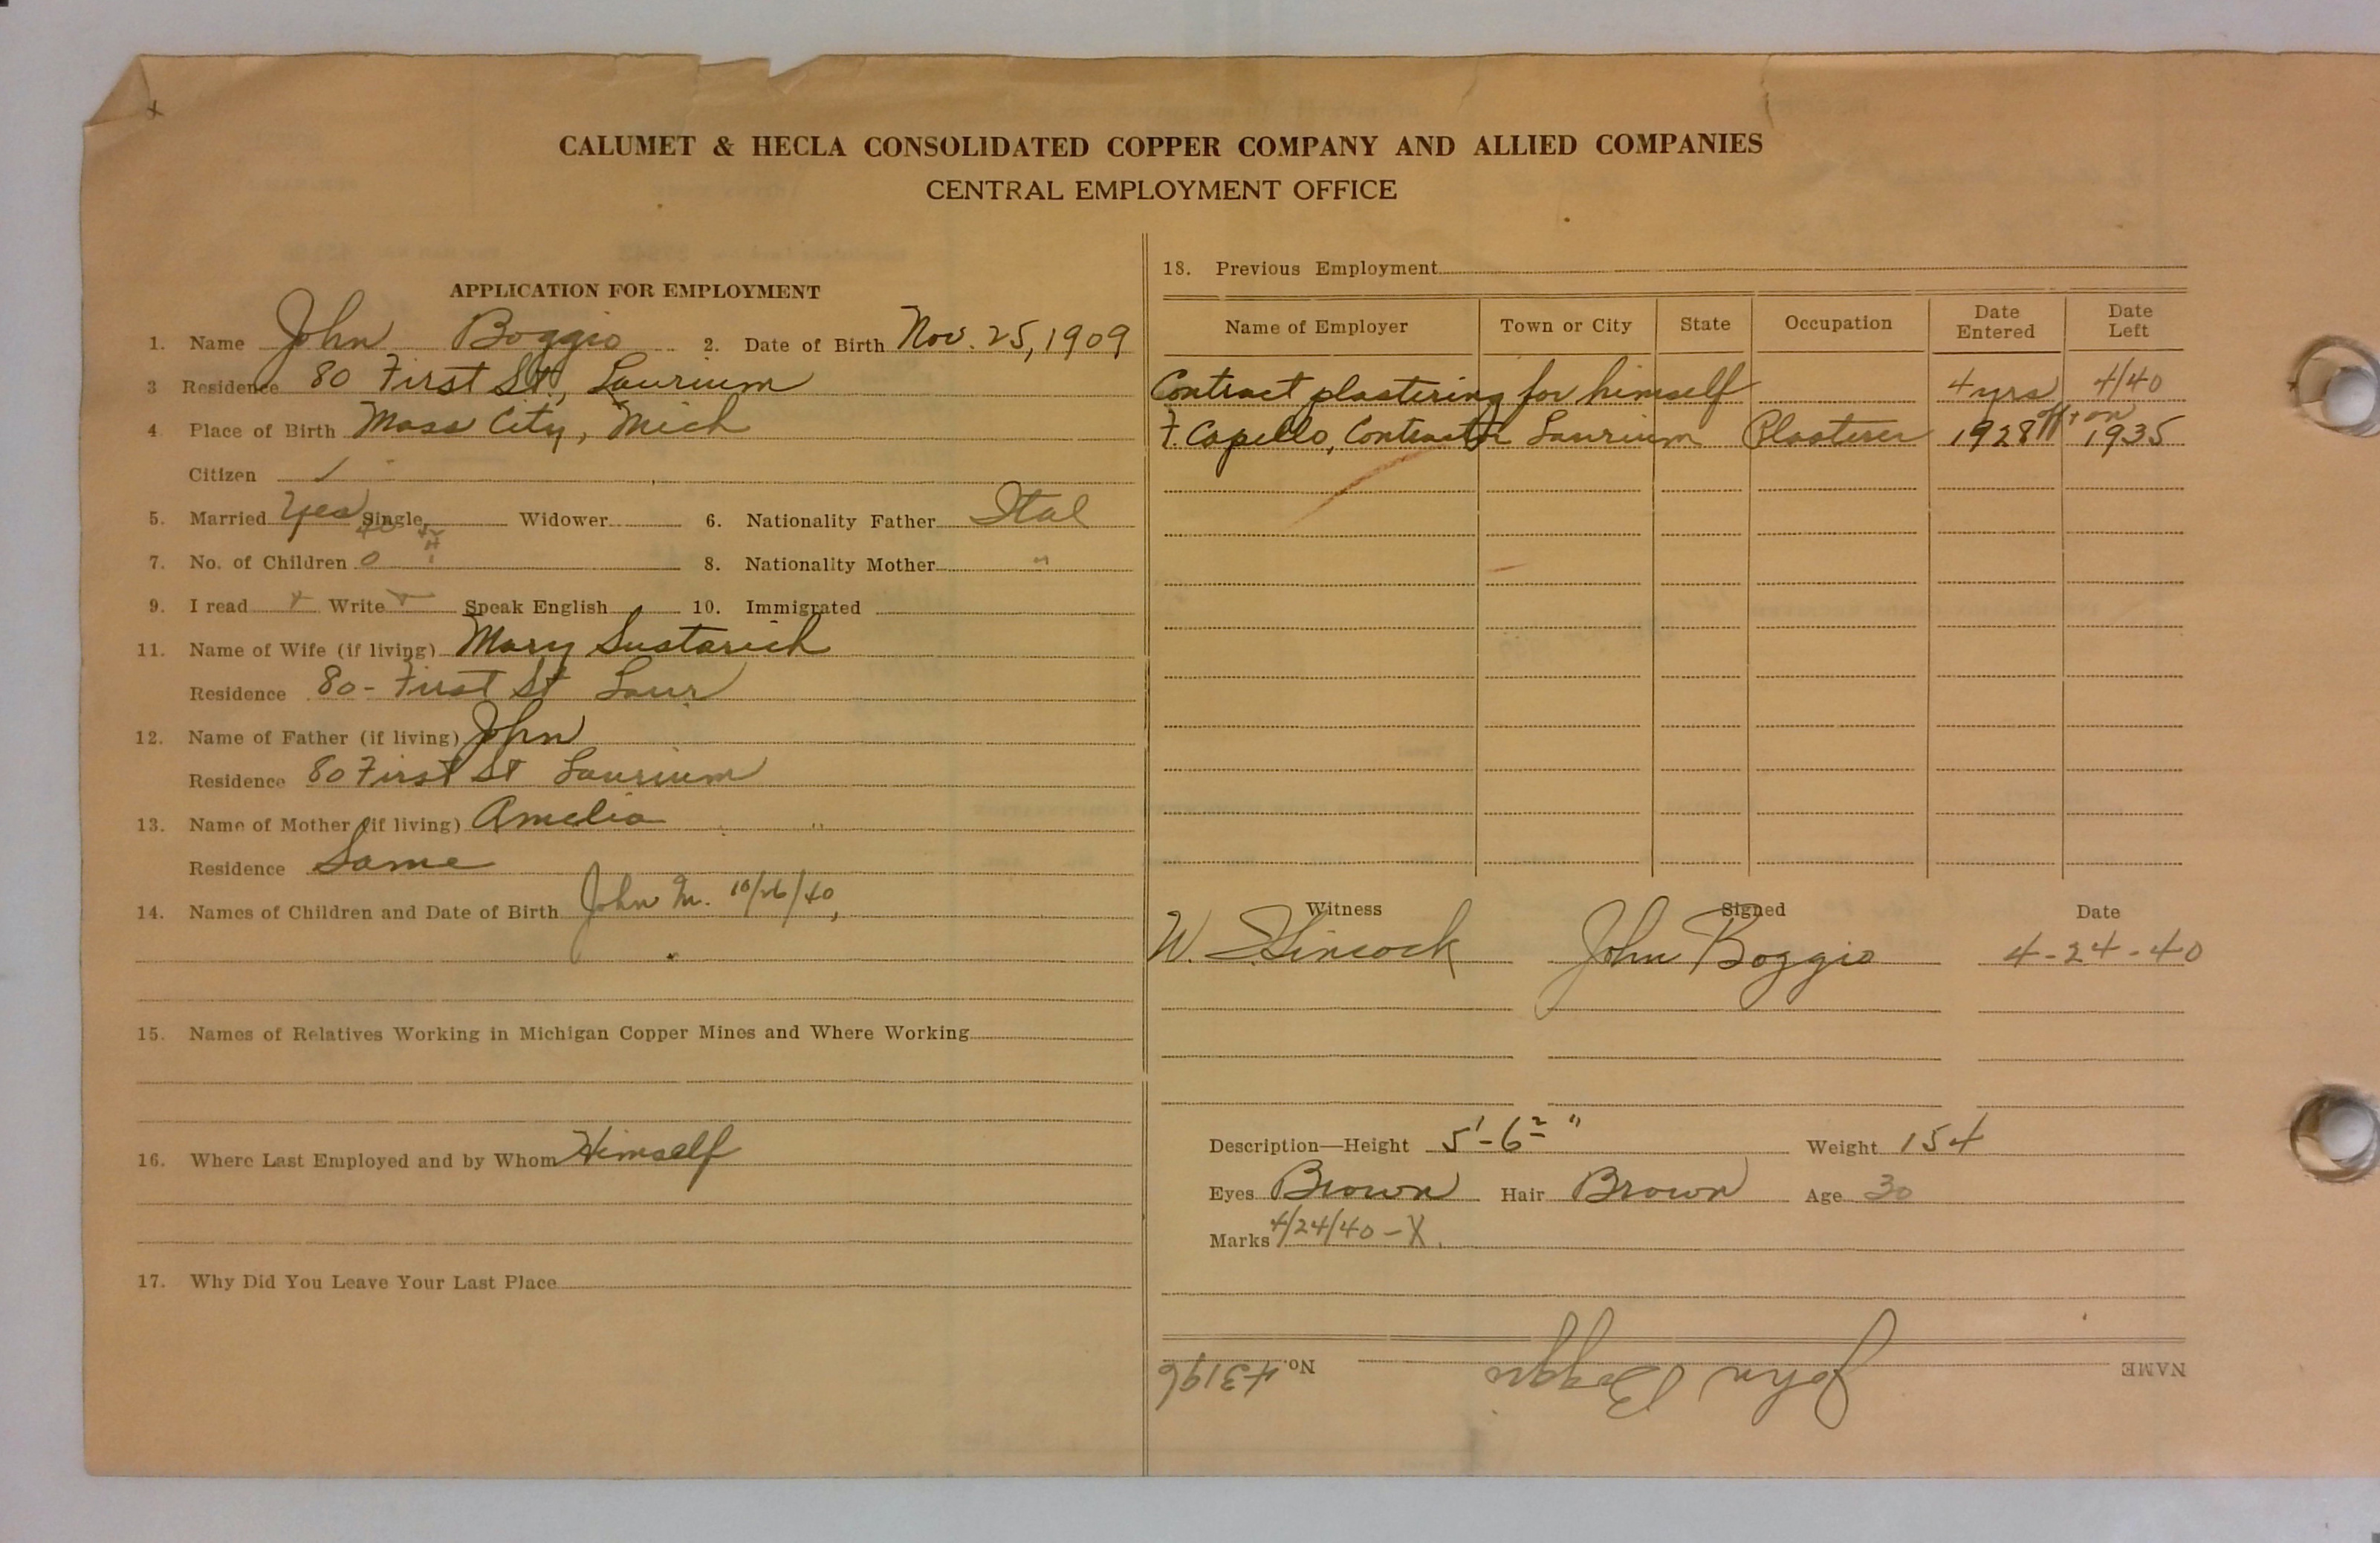 CALUMET & HECLA CONSOLIDATED COPPER COMPANY AND ALLIED COMPANIES
CENTRAL EMPLOYMENT OFFICE
APPLICATION FOR EMPLOYMENT
1. Name John Boggio 2. Date of Birth Nov. 25, 1909
3 Residence 80 First St., Laurium
4. Place of Birth Mass City, Mich
Citizen ✓
5. Married Yes Single Widower 6. Nationality Father Ital
7. No. of Children 0 8. Nationality Mother "
9. I read Write Speak English 10. Immigrated
11. Name of Wife (if living) Mary Sustarich
Residence 80 - First St Laur
12. Name of Father (if living) John
Residence 80 First St Laurium
13. Name of Mother (if living) Amelia "
Residence Same
14. Names of Children and Date of Birth John M. 10/26/40,
15. Names of Relatives Working in Michigan Copper Mines and Where Working
16. Where Last Employed and by Whom Himself
17. Why Did You Leave Your Last Place
18. Previous Employment
Name of Employer Town or City State Occupation Date Entered Date Left
Contract plastering for himself 4 yrs 4/40
F. Capello, Contractor Laurium Plasterer 1928 off + on 1935
Witness Signed Date
W. John Boggio 4-24-40
Description—Height 5'-6 2 " Weight 154
Eyes Brown Hair Brown Age 30
Marks 4/24/40 - X.
NAME John Boggio No. 43196